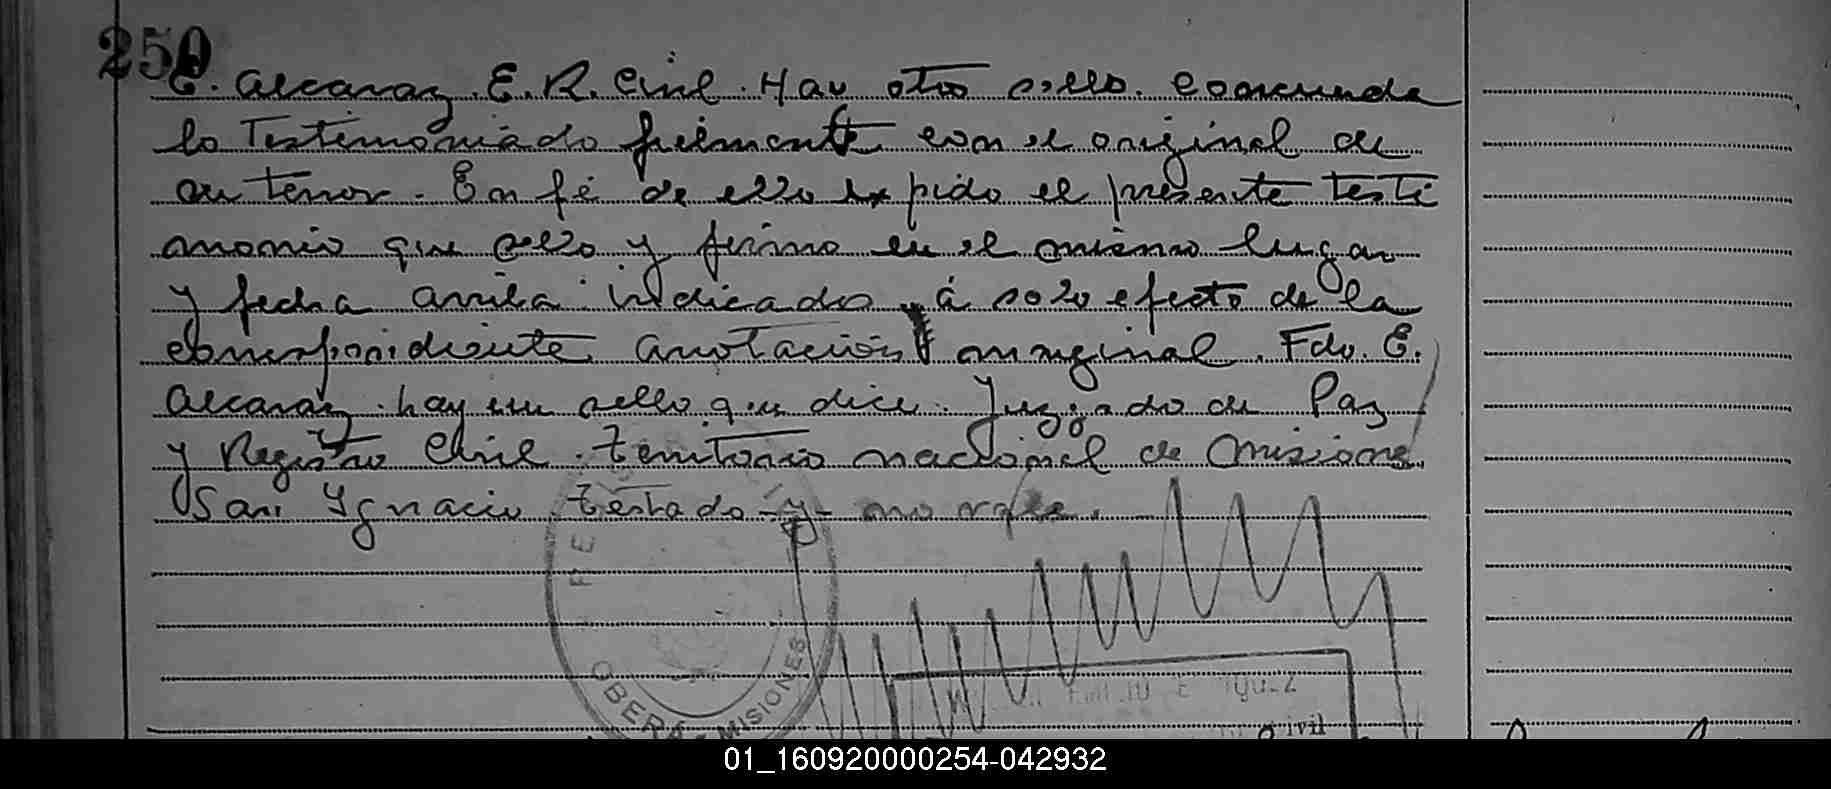 250
E. Alcaraz. E. R. Civil. Hay otro sello. Concuerda
lo Testimoniado fielmente con el original de
su tenor. En fé de ello expido el presente testi
monio que sello y firmo en el mismo lugar
y fecha arriba indicados, á solo efecto de la
correspondiente anotación marginal. Fdo. E.
Alcaraz. hay un sello que dice. Juzgado de Paz
y Registro Civil. territorio nacional de Misiones
San Ignacio testado -y- no vale.
OBERÁ - MISIONES
ivil
01_160920000254-042932